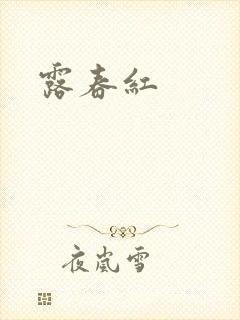 露春紅
夜嵐雪